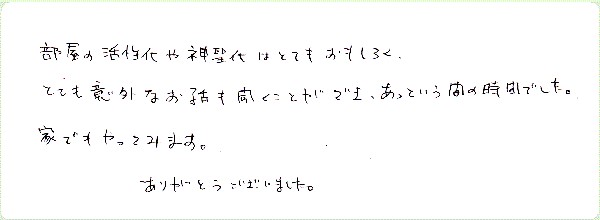 部屋の活性化や神聖化はとてもおもしろく、
とても意外なお話も聞くことができ、あっという間の時間でした。
家でもやってみます。
ありがとうございました。